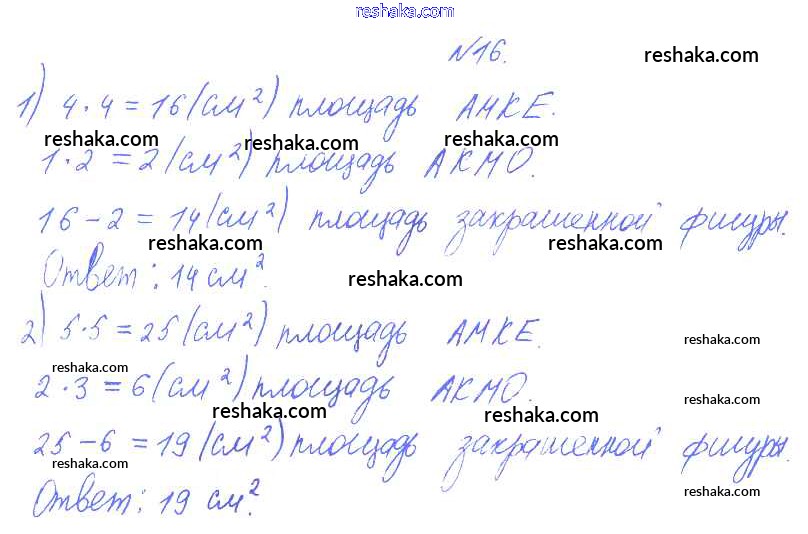 reshaka.com
№16. reshaka.com
1) 4·4=16(см²) площадь АМКЕ.
reshaka.com reshaka.com reshaka.com
1·2=2(см²) площадь АКМО.
16-2=14(см²) площадь закрашенной фигуры.
reshaka.com reshaka.com
Ответ: 14 см².
reshaka.com
2) 5·5=25(см²) площадь АМКЕ.
reshaka.com
reshaka.com
2·3=6(см²) площадь АКМО.
reshaka.com
reshaka.com reshaka.com
25-6=19(см²) площадь закрашенной фигуры.
reshaka.com
Ответ: 19 см².
reshaka.com